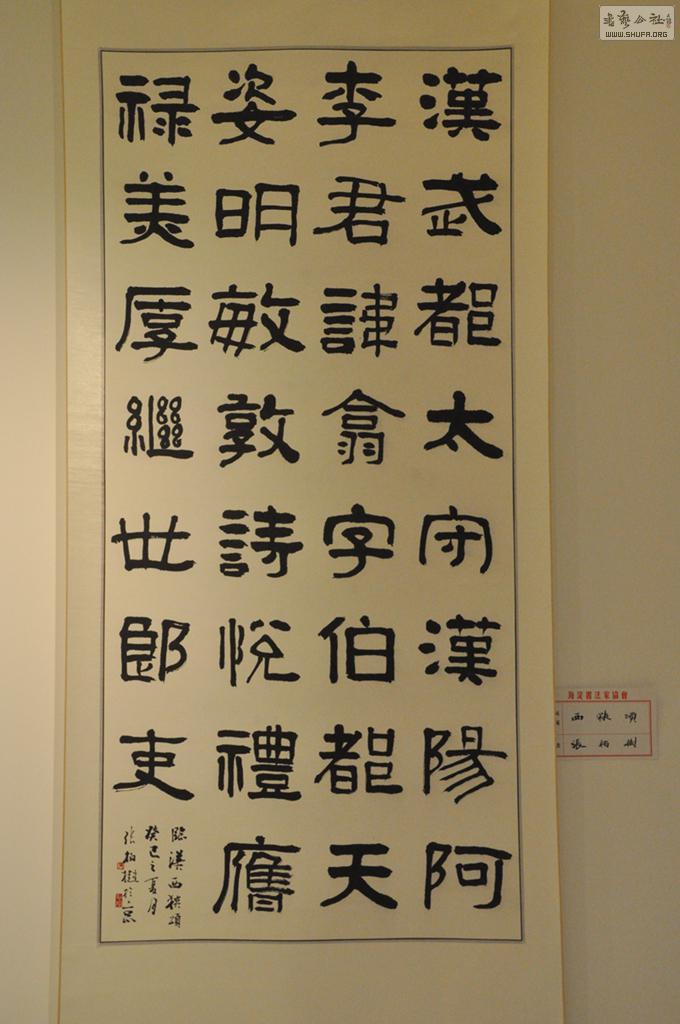 漢武都太守漢陽阿
李君諱翕字伯都天
姿明敏敦詩悅禮膺
禄美厚繼世郎吏
臨漢西狹頌
癸巳之夏月
張柏樹於京
海淀書法家協會
西狹頌
張柏樹
書藝公社
WWW.SHUFA.ORG